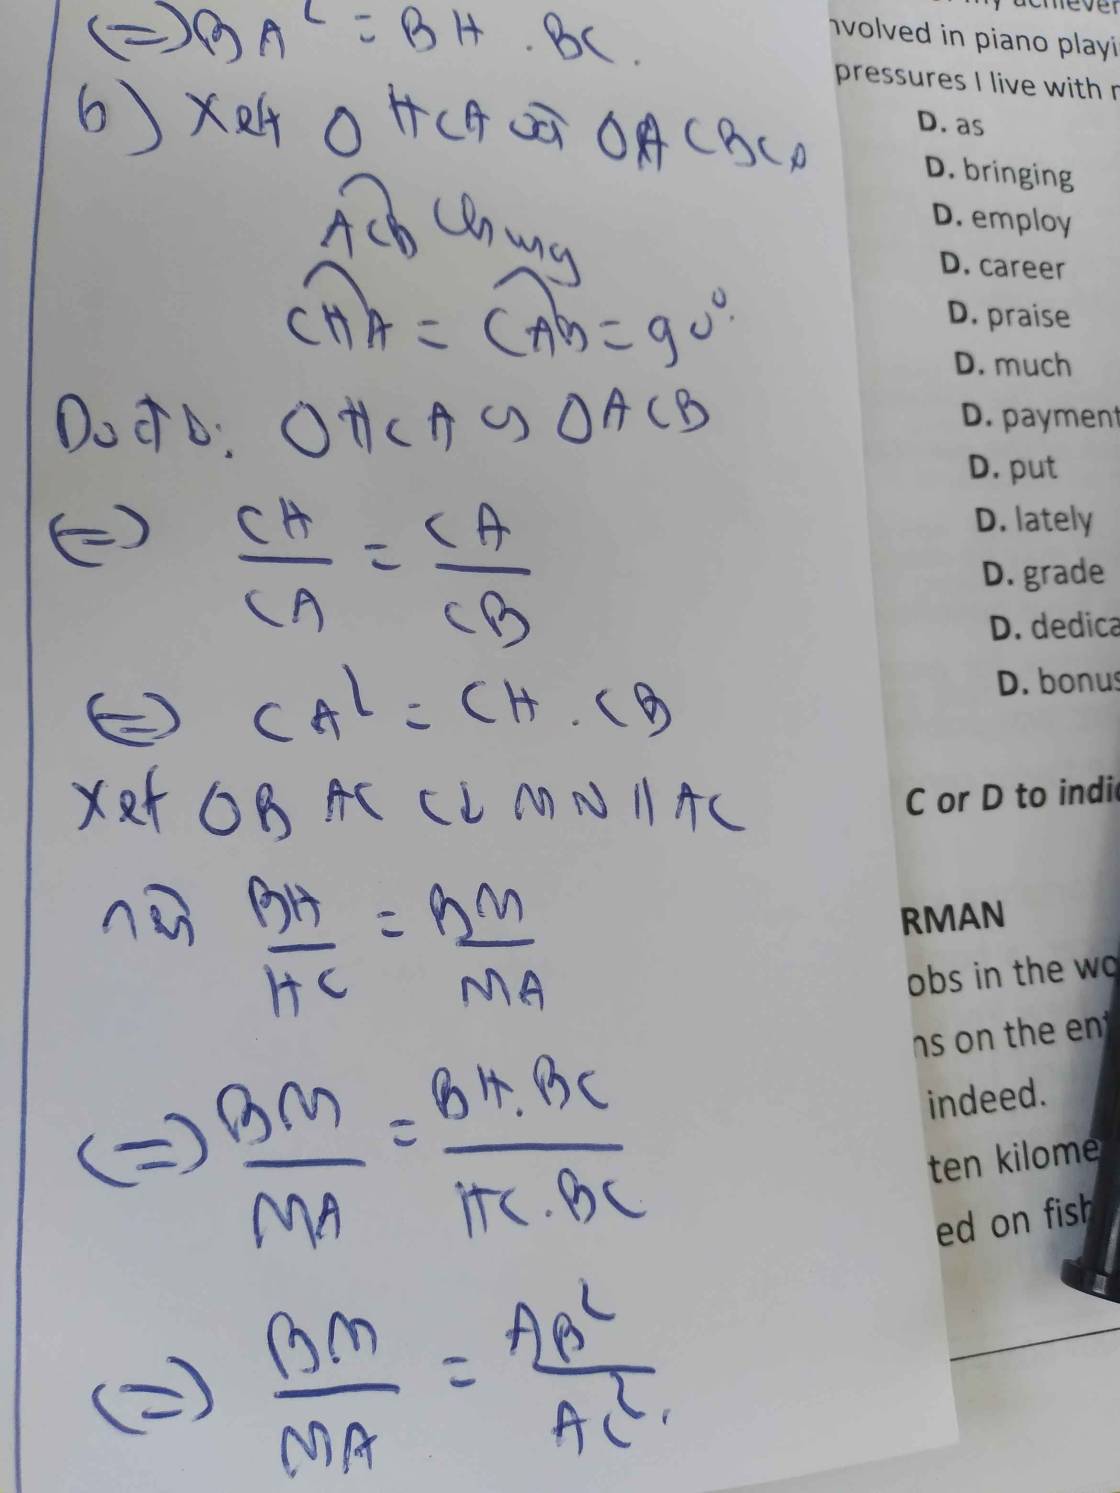 (=) BA² = BH . BC.
b) Xét Δ HCA và Δ ACB có
ACB chung
CHA = CAB = 90°.
Do đó: Δ HCA ∽ Δ ACB
(=) CH/CA = CA/CB
(=) CA² = CH . CB
Xét Δ BAC có MN // AC
nên BH/HC = BM/MA
(=) BM/MA = BH.BC/HC.BC
(=) BM/MA = AB²/AC².
nvolved in piano playi
pressures I live with
D. as
D. bringing
D. employ
D. career
D. praise
D. much
D. payment
D. put
D. lately
D. grade
D. dedica
D. bonus
C or D to indi
RMAN
obs in the wo
ns on the en
indeed.
ten kilome
ed on fish